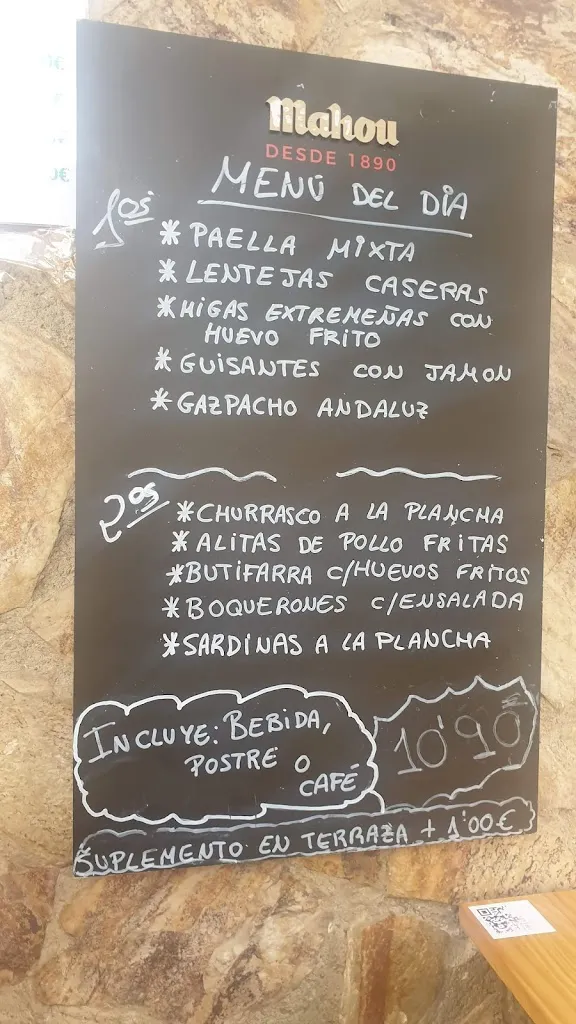 Mahou
DESDE 1890
MENÚ DEL DÍA
1os
* PAELLA MIXTA
* LENTEJAS CASERAS
* MIGAS EXTREMEÑAS CON
HUEVO FRITO
* GUISANTES CON JAMON
* GAZPACHO ANDALUZ
2os
* CHURRASCO A LA PLANCHA
* ALITAS DE POLLO FRITAS
* BUTIFARRA C/HUEVOS FRITOS
* BOQUERONES C/ENSALADA
* SARDINAS A LA PLANCHA
INCLUYE: BEBIDA,
POSTRE O
CAFÉ
10'90
SUPLEMENTO EN TERRAZA + 1'00€